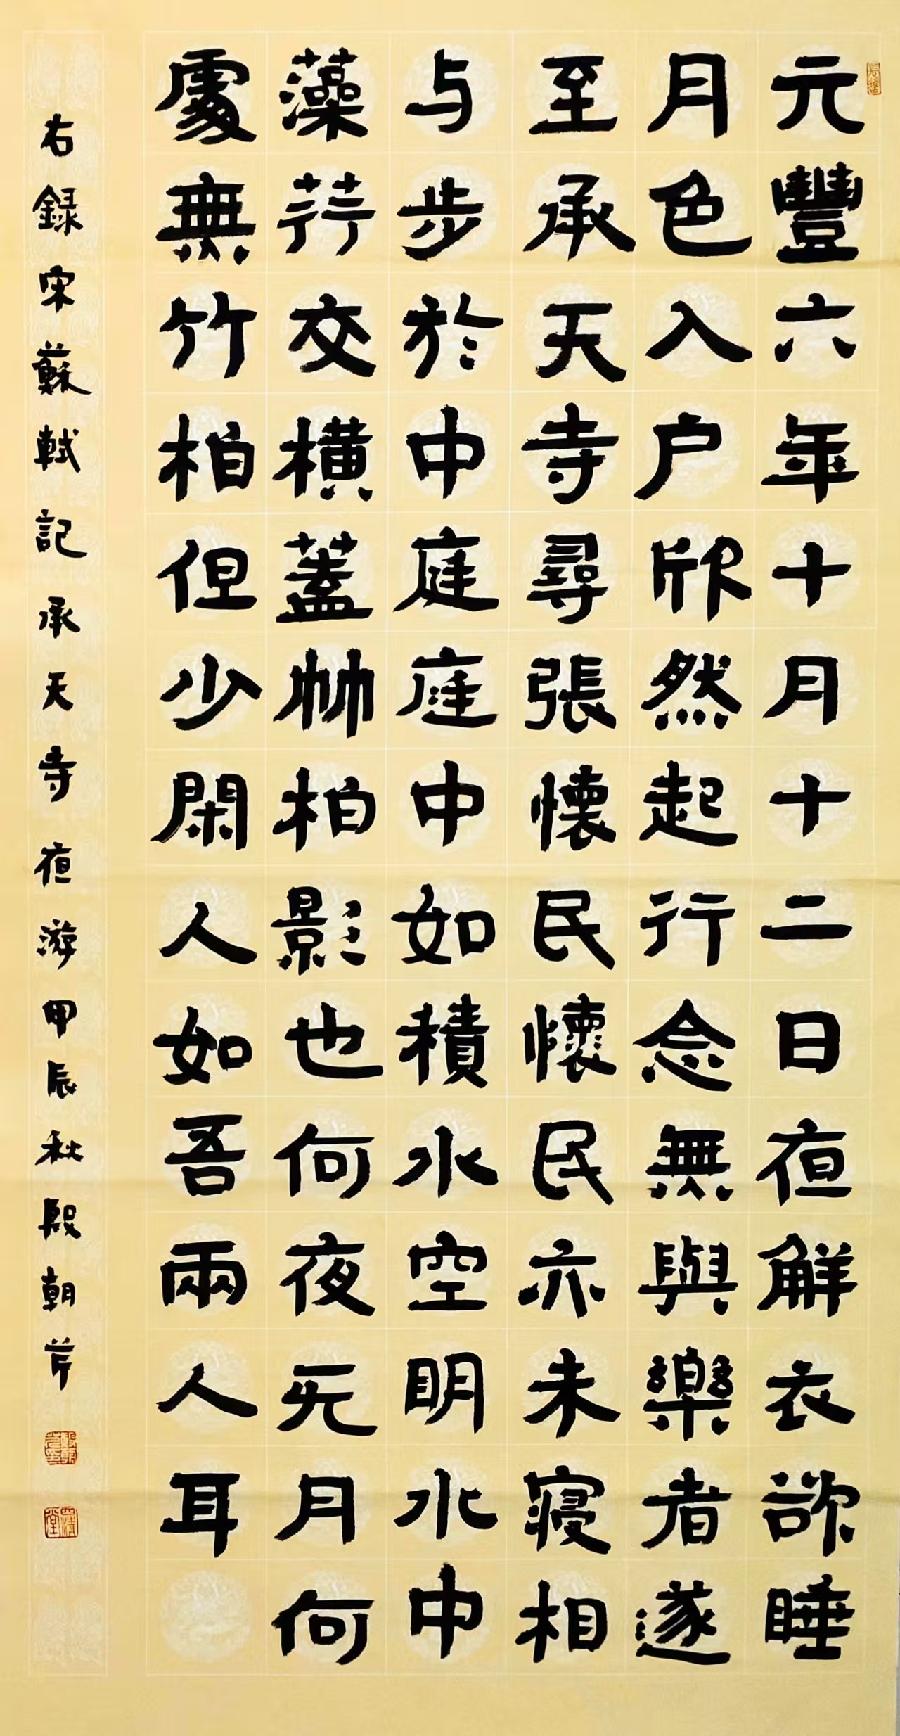 元豐六年十月十二日夜解衣欲睡
月色入户欣然起行念無與樂者遂
至承天寺尋張懷民懷民亦未寝相
与步於中庭庭中如積水空明水中
藻荇交横蓋竹柏影也何夜无月何
處無竹柏但少閑人如吾兩人耳
右録宋蘇軾記承天寺夜游甲辰秋殷朝芹